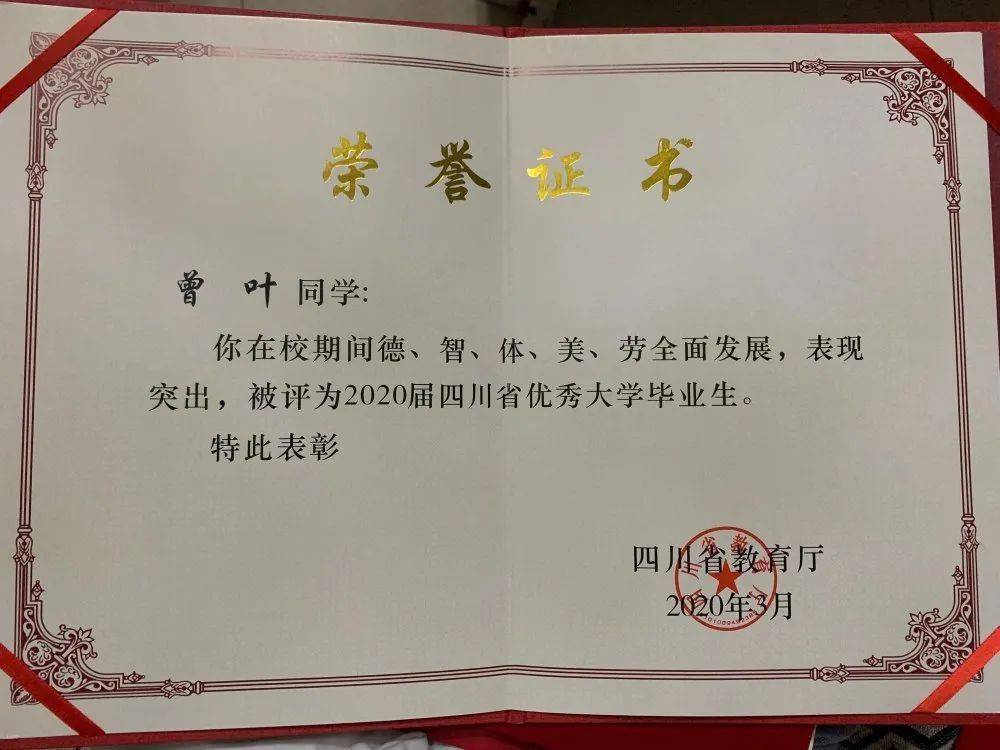 荣誉证书
曾 叶 同学:
你在校期间德、智、体、美、劳全面发展，表现
突出，被评为2020届四川省优秀大学毕业生。
特此表彰
四川省教育厅
2020年3月
四川省教育厅